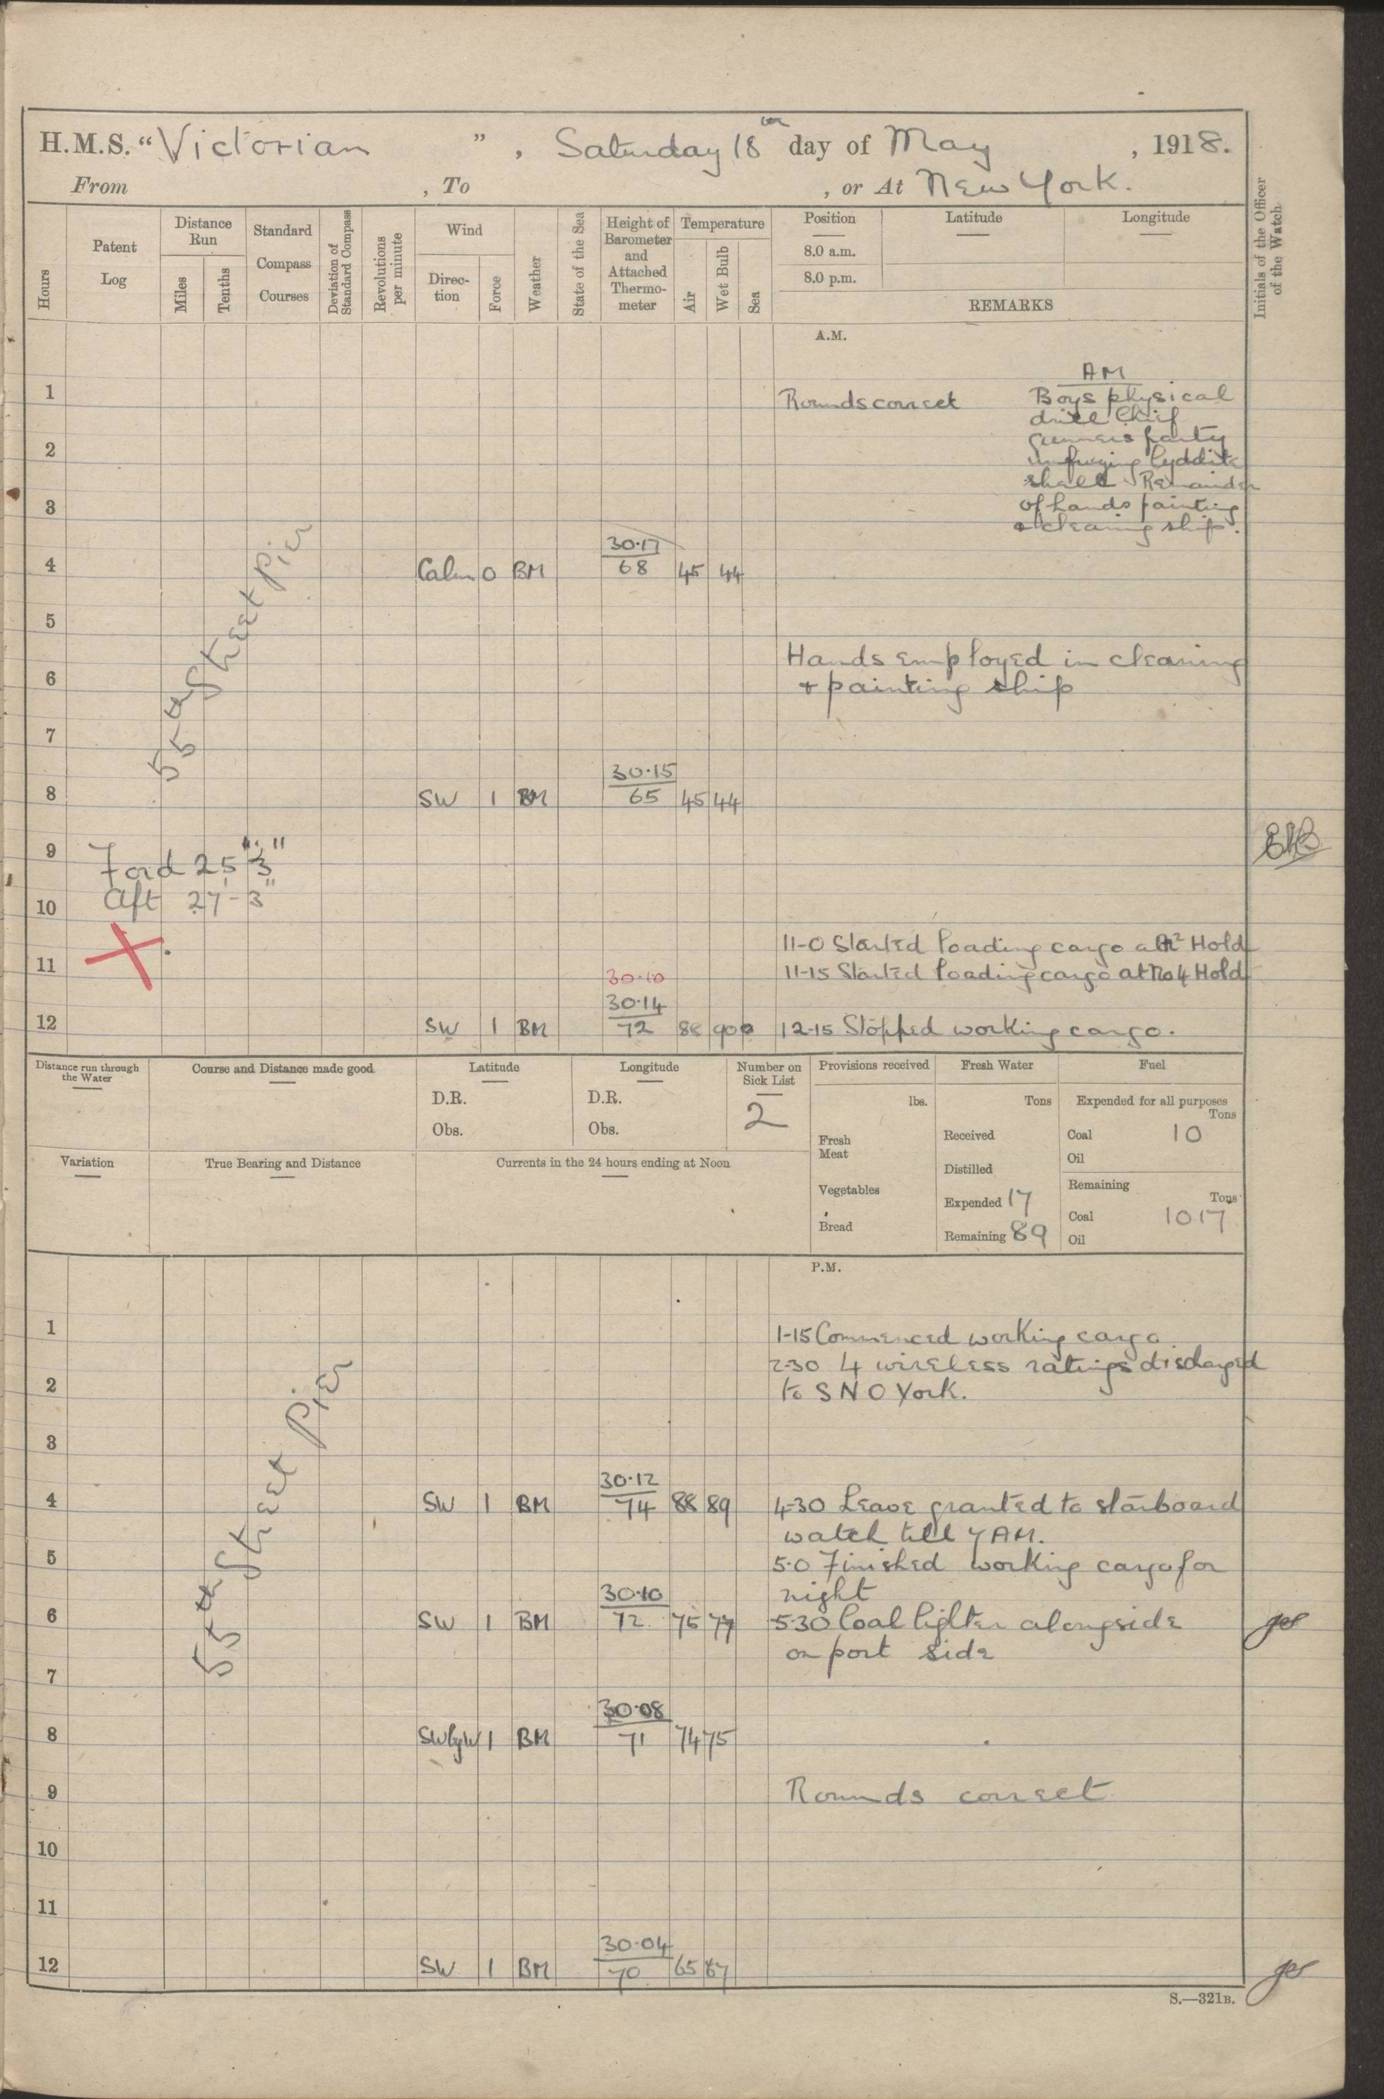 H.M.S. "Victorian", Saturday 18th day of May, 1918.
From , To , or At New York.
Hours
Patent Log
Distance Run
Miles
Tenths
Standard Compass Courses
Deviation of Standard Compass
Revolutions per minute
Wind
Direction
Force
Weather
State of the Sea
Height of Barometer and Attached Thermometer
Temperature
Air
Wet Bulb
Sea
Position
Latitude
Longitude
8.0 a.m.
8.0 p.m.
REMARKS
Initials of the Officer of the Watch
A.M.
AM
1 Rounds correct
Boys physical
drill Chief
Gunners party
unfuzing lyddite
shell Remainder
of hands painting
& cleaning ship.
2
3
55th Street Pier
4 Calm 0 BM 30.17 68 45 44
5
Hands employed in cleaning
6 & painting ship
7
8 SW 1 BM 30.15 65 45 44
9 Ford 25' 3"
Aft 27' - 3"
10
11-0 Started loading cargo at No 2 Hold
11 11-15 Started loading cargo at No 4 Hold
30.10
12 SW 1 BM 30.14 72 88 90 12-15 Stopped working cargo.
Distance run through the Water
Course and Distance made good
Latitude
D.R.
Obs.
Longitude
D.R.
Obs.
Number on Sick List
2
Provisions received
lbs.
Fresh Meat
Vegetables
Bread
Fresh Water
Tons
Received
Distilled
Expended 17
Remaining 89
Fuel
Expended for all purposes
Tons
Coal 10
Oil
Remaining
Tons
Coal 1017
Oil
Variation
True Bearing and Distance
Currents in the 24 hours ending at Noon
P.M.
1 1-15 Commenced working cargo
2-30 4 wireless ratings discharged
2 to S N O York.
3
55th Street Pier
4 SW 1 BM 30.12 74 88 89 4-30 Leave granted to starboard
watch till 7 AM.
5 5.0 Finished working cargo for
night
6 SW 1 BM 30.10 72 75 77 5.30 Coal lighter alongside
on port side
7
8 SWbyW 1 BM 30.08 71 74 75
9 Rounds correct
10
11
12 SW 1 BM 30.04 70 65 67
S.—321B.